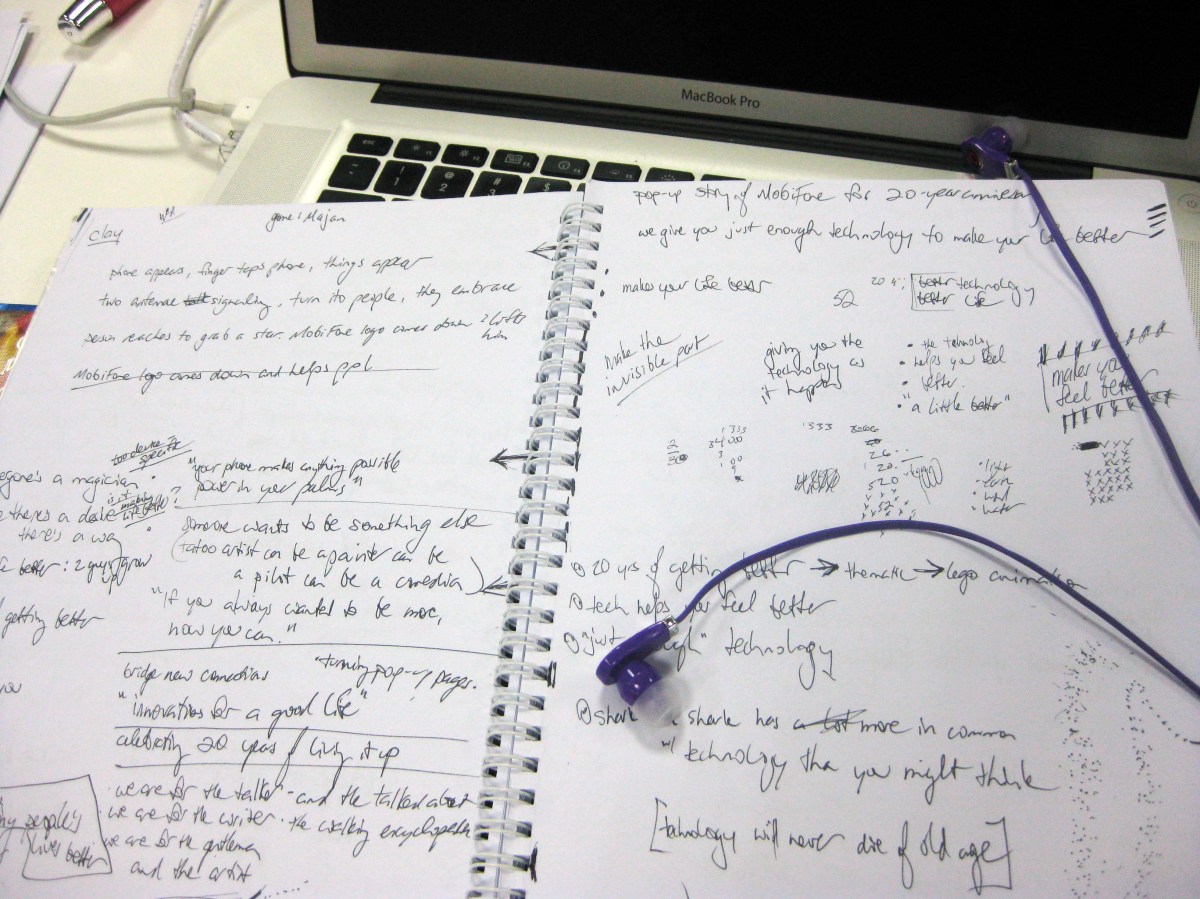 MacBook Pro
esc
clay
phone appears, finger taps phone, things appear
two antennae talk signaling, turn ito people, they embrace
person reaches to grab a star. MobiFone logo comes down & lifts
him
MobiFone logo comes down and helps ppl
too device
specific
"your phone makes anything possible
power in your palms"
egone's a magician
is it making
life better?
e there's a desire
there's a way
a better: 2 guys grow
up
getting better
someone wants to be something else
(tatoo artist can be a painter can be
a pilot can be a comedian)
"If you always wanted to be more,
now you can."
bridge new connections
"turning pop-up pages.
"innovations for a good life"
celebrating 20 years of living it up
people's
lives better
we are for the talker - and the talked about
we are for the writer - the walking encyclopedia
we are for the gentleman
and the artist
pop-up story of MobiFone for 20-year
we give you just enough technology to make your life better
• makes your life better
52
20 y:
better technology
better life
make the
invisible part
giving you the
technology as
it happens
• the technology
• helps you feel
• better.
• "a little better"
makes you
feel better
1333
1333
26
20
520
• light
• wind
• water
20 yrs of getting better → thematic → lego animation
tech helps you feel better
"just technology
shark shark has a lot more in common
w/ technology than you might think
[technology will never die of old age]